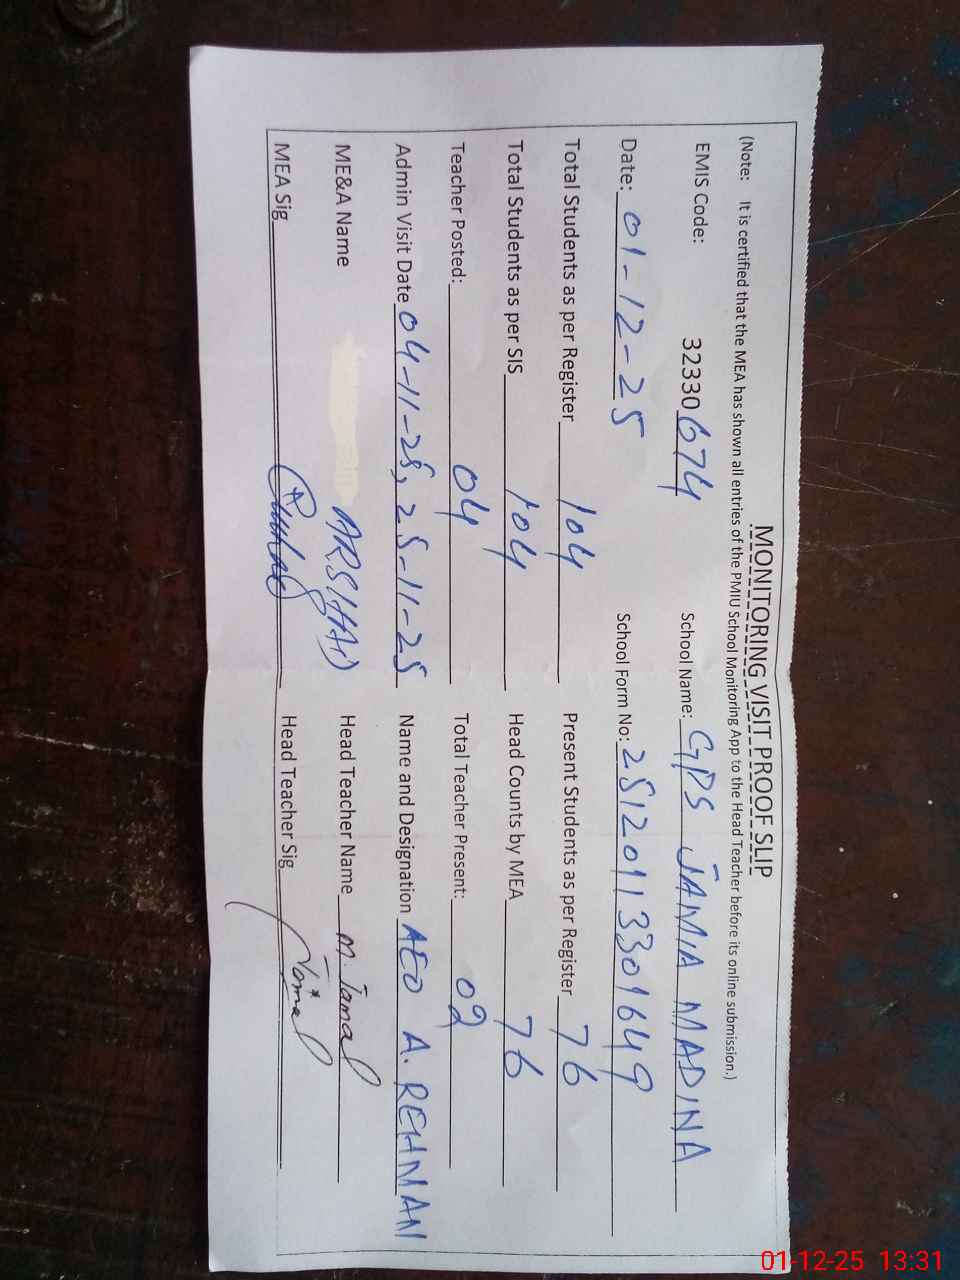 MONITORING VISIT PROOF SLIP
(Note: It is certified that the MEA has shown all entries of the PMIU School Monitoring App to the Head Teacher before its online submission.)
EMIS Code: 32330674 School Name: GPS JAMIA MADINA
Date: 01-12-25 School Form No: 25120113301649
Total Students as per Register 104 Present Students as per Register 76
Total Students as per SIS 104 Head Counts by MEA 76
Teacher Posted: 04 Total Teacher Present: 02
Admin Visit Date 04-11-25, 25-11-25 Name and Designation AEO A. REHMAN
ME&A Name ARSHAD Head Teacher Name M. Jamal
MEA Sig Head Teacher Sig Jamal
01-12-25 13:31